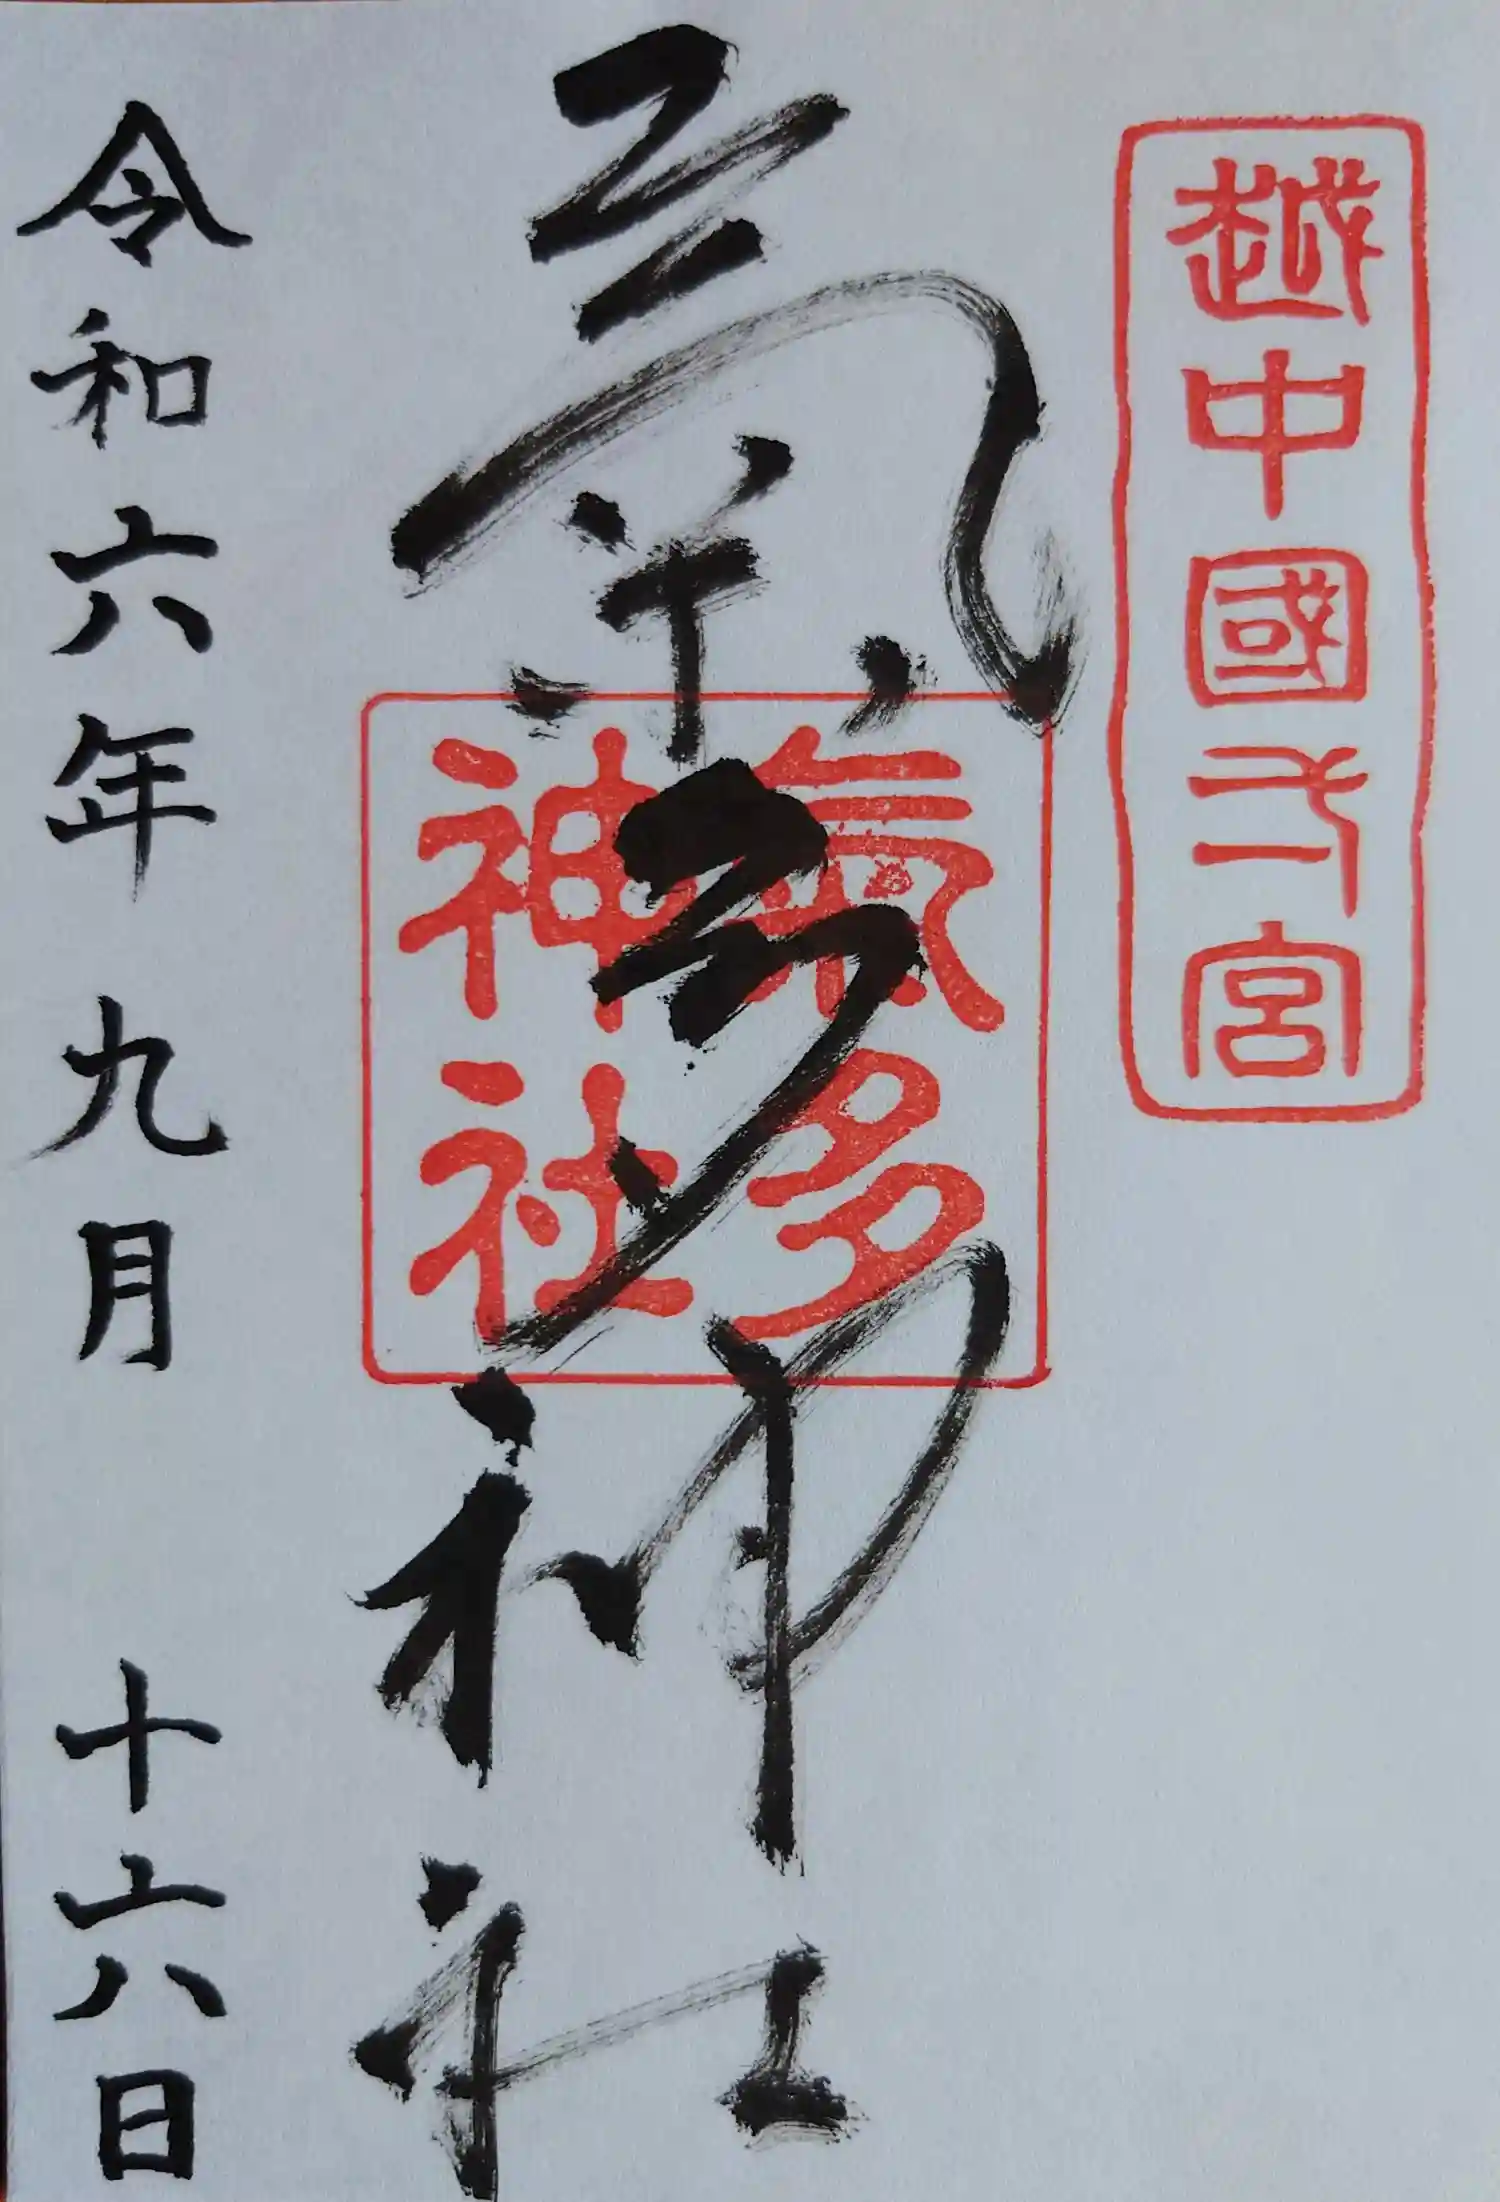 越中國一宮
氣多神社
氣多
神社
令和六年九月十六日